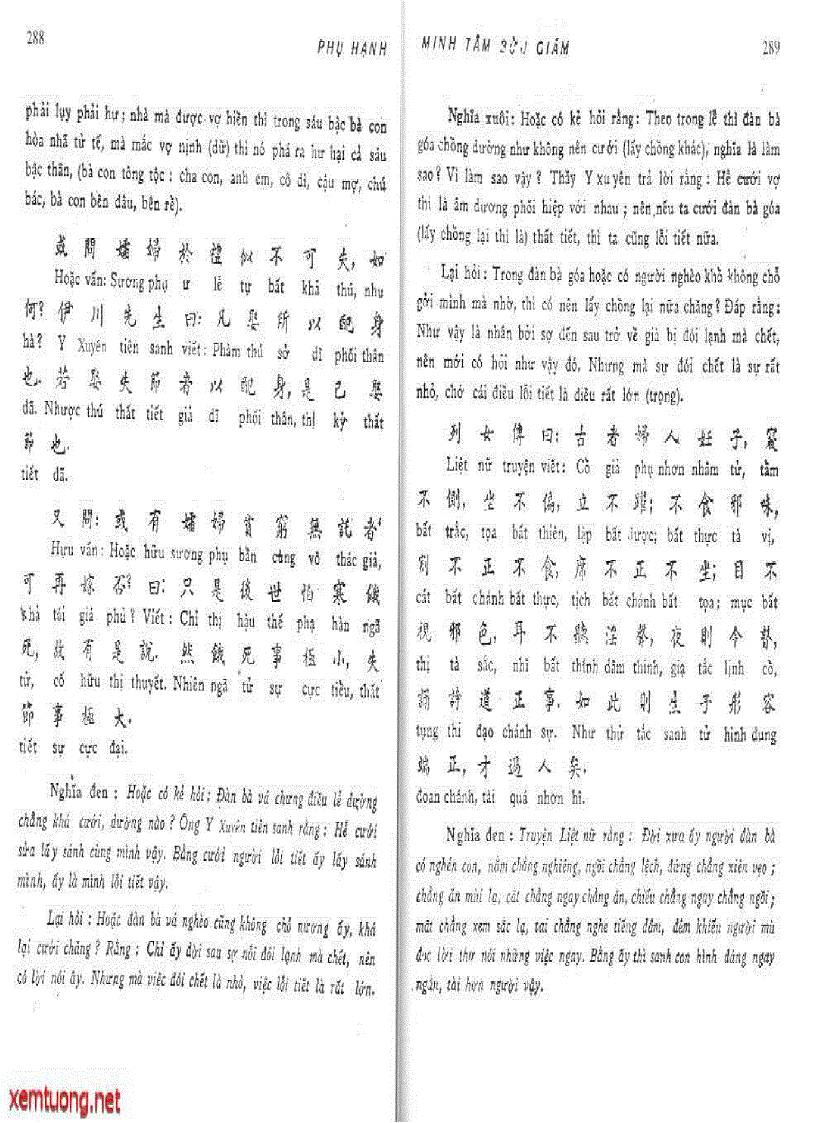 288
PHỤ HẠNH
phải lụy phải hư; nhà mà được vợ hiền thì trong sáu bậc bà con
hòa nhã tử tế, mà mắc vợ nịnh (dữ) thì nó phá ra hư hại cả sáu
bậc thân, (bà con tông tộc: cha con, anh em, cô dì, cậu mợ, chú
bác, bà con bên dâu, bên rể).
或問孀婦於 似不可 , 如
Hoặc vấn: Sương phụ ư lễ tự bất khả thú, như
何? 伊川先生曰: 凡娶所以配身
hà? Y Xuyên tiên sanh viết: Phàm thú sở dĩ phối thân
也. 若娶失節者以配身, 是己娶
dã. Nhược thú thất tiết giả dĩ phối thân, thị kỷ thất
節也.
tiết dã.
又問: 或有孀婦貧窮無託者
Hựu vấn: Hoặc hữu sương phụ bần cùng vô thác giả,
可再嫁否? 曰: 只是後世怕寒餓
khả tái giá phủ? Viết: Chỉ thị hậu thế phạ hàn ngã
死, 故有是說. 然餓死事極小, 失
tử, cố hữu thị thuyết. Nhiên ngã tử sự cực tiểu, thất
節事極大.
tiết sự cực đại.
Nghĩa đen: Hoặc có kẻ hỏi: Đàn bà vá chưng điều lễ dường
chẳng khá cưới, dường nào? Ông Y Xuyên tiên sanh rằng: Hễ cưới
sửa lấy sánh cùng mình vậy. Bằng cưới người lỗi tiết ấy lấy sánh
mình, ấy là mình lỗi tiết vậy.
Lại hỏi: Hoặc đàn bà vá nghèo cũng không chỗ nương ấy, khá
lại cưới chăng? Rằng: Chỉ ấy đời sau sợ nỗi đói lạnh mà chết, nên
có lời nói ấy. Nhưng mà việc đói chết là nhỏ, việc lỗi tiết là rất lớn.
MINH TÂM BỬU GIÁM
289
Nghĩa xuôi: Hoặc có kẻ hỏi rằng: Theo trong lễ thì đàn bà
góa chồng dường như không nên cưới (lấy chồng khác), nghĩa là làm
sao? Vì làm sao vậy? Thầy Y xuyên trả lời rằng: Hễ cưới vợ
thì là âm dương phối hiệp với nhau; nên nếu ta cưới đàn bà góa
(lấy chồng lại thì là) thất tiết, thì ta cũng lỗi tiết nữa.
Lại hỏi: Trong đàn bà góa hoặc có người nghèo khổ không chỗ
gởi mình mà nhờ, thì có nên lấy chồng lại nữa chăng? Đáp rằng:
Như vậy là nhân bởi sự đến sau trở về già bị đói lạnh mà chết,
nên mới có hỏi như vậy đó. Nhưng mà sự đói chết là sự rất
nhỏ, chớ cái điều lỗi tiết là điều rất lớn (trọng).
列女傳曰: 古者婦人妊子, 寢
Liệt nữ truyện viết: Cổ giả phụ nhơn nhâm tử, tẩm
不側, 坐不偏, 立不躍; 不食邪味,
bất trắc, tọa bất thiên, lập bất dược; bất thực tà vị,
割不正不食, 席不正不坐; 目不
cát bất chánh bất thực, tịch bất chánh bất tọa; mục bất
視邪色, 耳不聽淫聲, 夜則令瞽,
thị tà sắc, nhĩ bất thính dâm thinh, dạ tắc lịnh cổ,
誦詩道正事. 如此則生子形容
tụng thi đạo chánh sự. Như thử tắc sanh tử hình dung
端正, 才過人矣.
đoan chánh, tài quá nhơn hĩ.
Nghĩa đen: Truyện Liệt nữ rằng: Đời xưa ấy người đàn bà
có nghén con, nằm chẳng nghiêng, ngồi chẳng lệch, đứng chẳng xiên vẹo;
chẳng ăn mùi lạ, cắt chẳng ngay chẳng ăn, chiếu chẳng ngay chẳng ngồi;
mắt chẳng xem sắc lạ, tai chẳng nghe tiếng dâm, đêm khiến người mù
đọc lời thơ nói những việc ngay. Bằng ấy thì sanh con hình dáng ngay
ngắn, tài hơn người vậy.
xemtuong.net